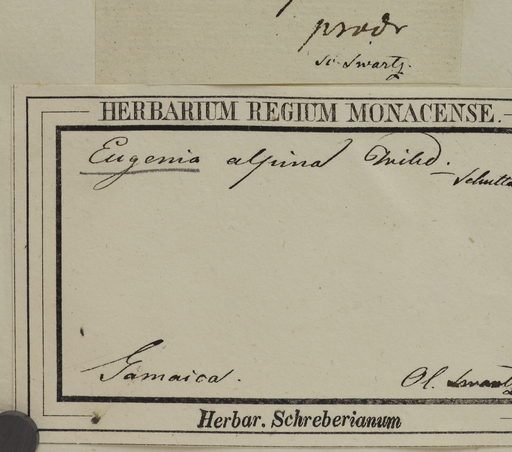 prodr
sc. Swartz.
HERBARIUM REGIUM MONACENSE.
Eugenia alpina Willd.
Jamaica.
Ol. Swartz
Herbar. Schreberianum